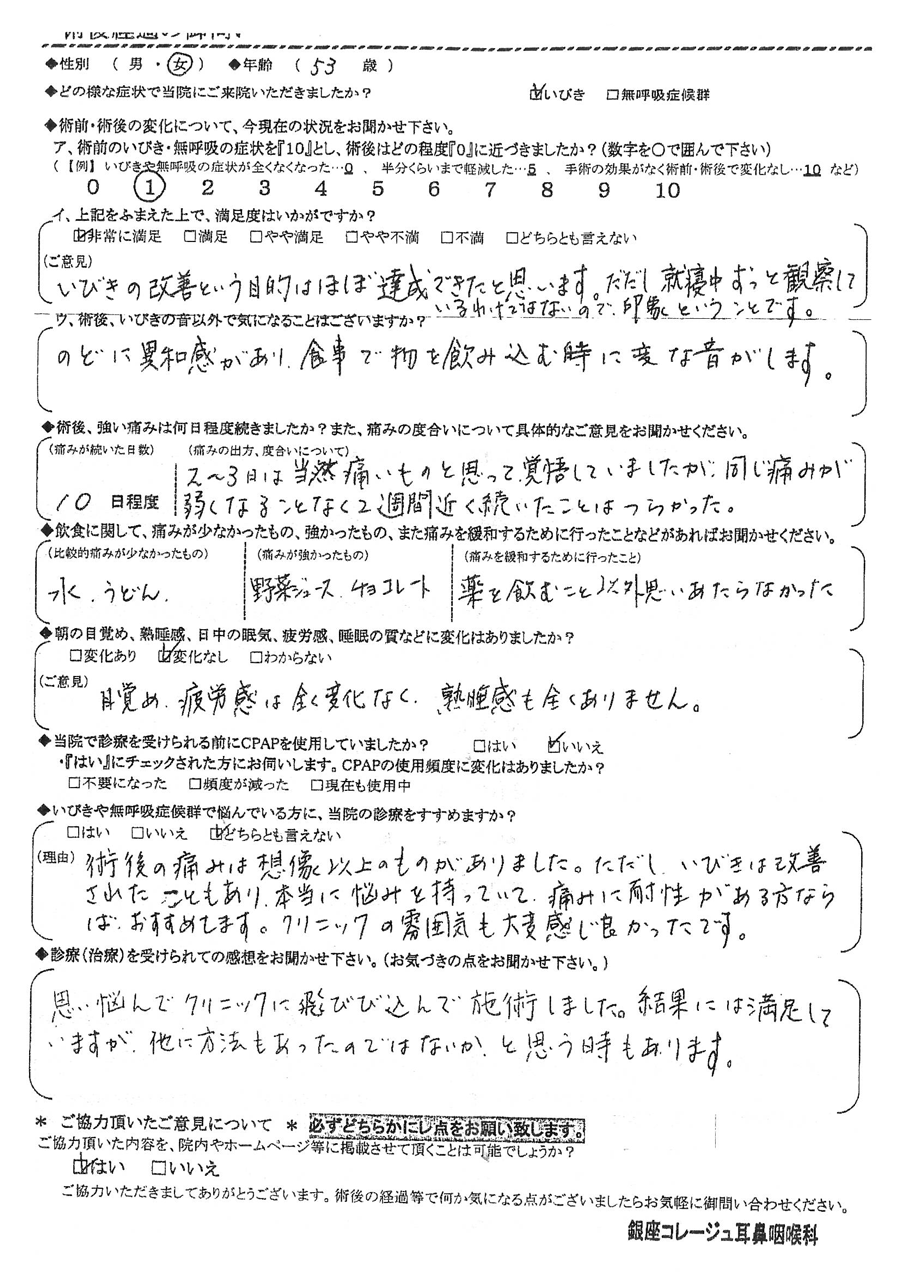 術後経過の御伺い
◆性別 （ 男 ・ 女 ） ◆年齢 （ 53 歳 ）
◆どの様な症状で当院にご来院いただきましたか？ ☑いびき □無呼吸症候群
◆術前・術後の変化について、今現在の状況をお聞かせ下さい。
ア、術前のいびき・無呼吸の症状を『10』とし、術後はどの程度『0』に近づきましたか？（数字を○で囲んで下さい）
（【例】いびきや無呼吸の症状が全くなくなった…0 、 半分くらいまで軽減した…5 、 手術の効果がなく術前・術後で変化なし…10 など）
0 ① 2 3 4 5 6 7 8 9 10
イ、上記をふまえた上で、満足度はいかがですか？
☑非常に満足 □満足 □やや満足 □やや不満 □不満 □どちらとも言えない
（ご意見）
いびきの改善という目的はほぼ達成できたと思います。ただし就寝中ずっと観察して
いるわけではないので、印象ということです。
ウ、術後、いびきの音以外で気になることはございますか？
のどに異和感があり、食事で物を飲み込む時に変な音がします。
◆術後、強い痛みは何日程度続きましたか？また、痛みの度合いについて具体的なご意見をお聞かせください。
（痛みが続いた日数） （痛みの出方、度合いについて）
2〜3日は当然痛いものと思って覚悟していましたが、同じ痛みが
10 日程度 弱くなることなく2週間近く続いたことはつらかった。
◆飲食に関して、痛みが少なかったもの、強かったもの、また痛みを緩和するために行ったことなどがあればお聞かせください。
（比較的痛みが少なかったもの） （痛みが強かったもの） （痛みを緩和するために行ったこと）
水、うどん、 野菜ジュース、チョコレート 薬を飲むこと以外思いあたらなかった
◆朝の目覚め、熟睡感、日中の眠気、疲労感、睡眠の質などに変化はありましたか？
□変化あり ☑変化なし □わからない
（ご意見） 目覚め、疲労感は全く変化なく、熟睡感も全くありません。
◆当院で診療を受けられる前にCPAPを使用していましたか？ □はい ☑いいえ
・『はい』にチェックされた方にお伺いします。CPAPの使用頻度に変化はありましたか？
□不要になった □頻度が減った □現在も使用中
◆いびきや無呼吸症候群で悩んでいる方に、当院の診療をすすめますか？
□はい □いいえ ☑どちらとも言えない
（理由） 術後の痛みは想像以上のものがありました。ただし、いびきは改善
されたこともあり、本当に悩みを持っていて、痛みに耐性がある方なら
ば、おすすめします。クリニックの雰囲気も大変感じ良かったです。
◆診療（治療）を受けられての感想をお聞かせ下さい。（お気づきの点をお聞かせ下さい。）
思い悩んでクリニックに飛びび込んで施術しました。結果には満足して
いますが、他に方法もあったのではないか、と思う時もあります。
＊ ご協力頂いたご意見について ＊ 必ずどちらかにレ点をお願い致します。
ご協力頂いた内容を、院内やホームページ等に掲載させて頂くことは可能でしょうか？
☑はい □いいえ
ご協力いただきましてありがとうございます。術後の経過等で何か気になる点がございましたらお気軽に御問い合わせください。
銀座コレージュ耳鼻咽喉科